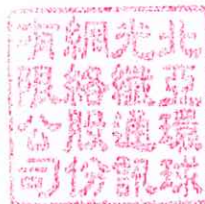 北亞環球
光纖通訊
網絡股份
有限公司